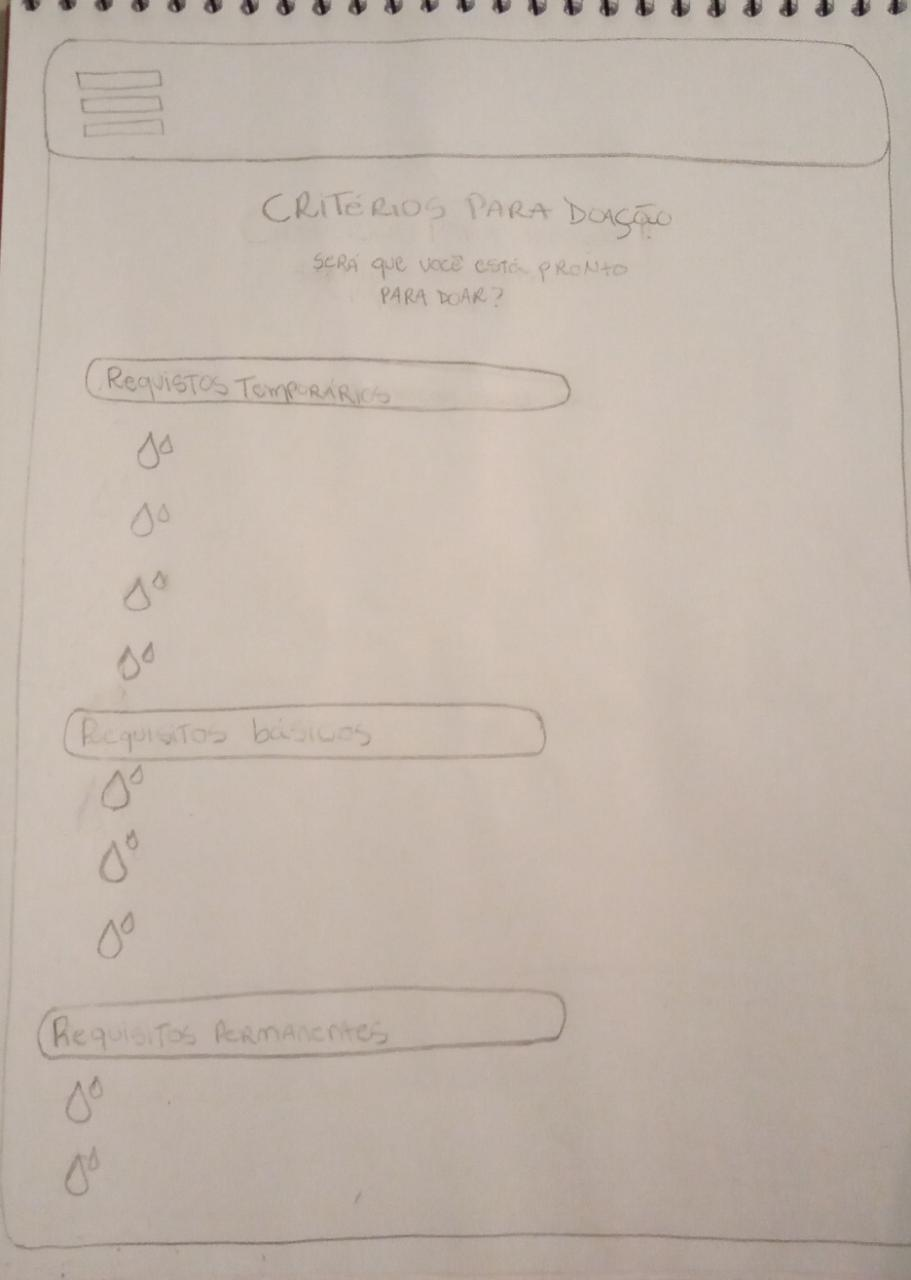 CRITÉRIOS PARA DOAÇÃO
SERÁ QUE VOCÊ ESTÁ PRONTO
PARA DOAR?
REQUISTOS TEMPORÁRIOS
REQUISITOS básicos
REQUISITOS PERMANENTES